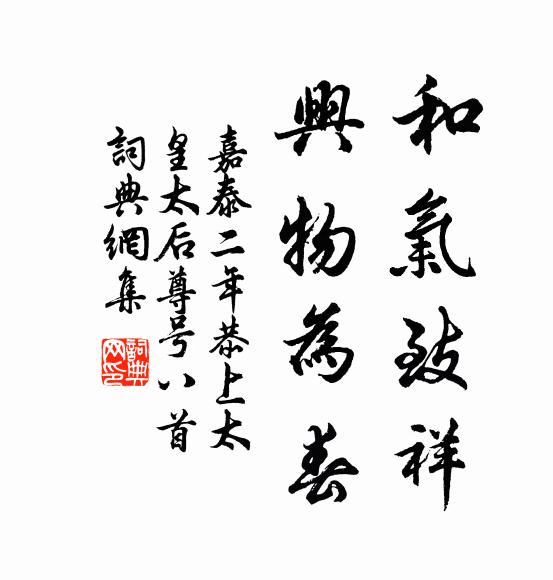 和氣致祥
興物為春
嘉泰二年恭上太
皇太后尊号八首
詞典網集
詞典
网印